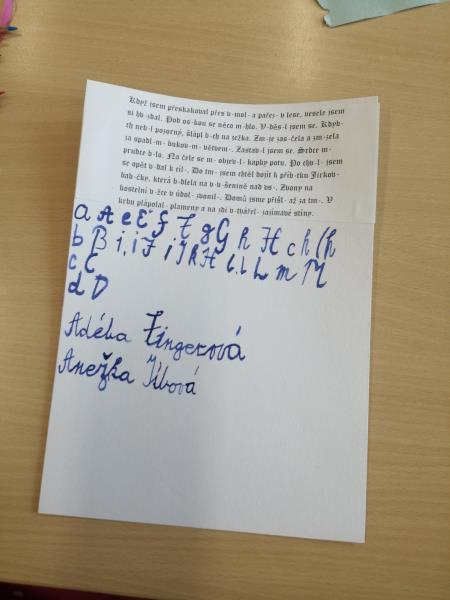 Když jsem přeskakoval přes v-mol- a pařez- v lese, vesele jsem
si hv-zdal. Pod os-kou se něco m-hlo. V-děs-l jsem se. Kdyb-
ch neb-l pozorný, šlápl b-ch na ježka. Zm-je zas-čela a zm-zela
za spadl-m- bukov-m- větvem-. Zastav-l jsem se. Srdce m-
prudce b-lo. Na čele se m- objev-l- kapky potu. Po chv-l- jsem
se opět v-dal k cíl-. Do tm- jsem chtěl dojít k příb-tku Jirkov-
bab-čky, která b-dlela na v-v-šenině nad vs-. Zvony na
kostelní v-žce v údol- zvonil-. Domů jsme přišl- až za tm-. V
krbu plápolal- plameny a na zdi v-tvářel- zajímavé stíny.
a A e E f F g G h H c h Ch
b B i, i I j J k K l, l L m M
c C
d D
Adéla Zingerová
Anežka Jíbová